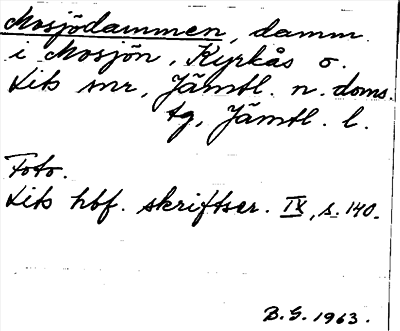 Mosjödammen, damm
i Mosjön, Kyrkås o.
Lits snr, Jämtl. n. doms.
tg, Jämtl. l.
Foto.
Lits hbf. skriftser. IX, s. 140.
B.G. 1963.